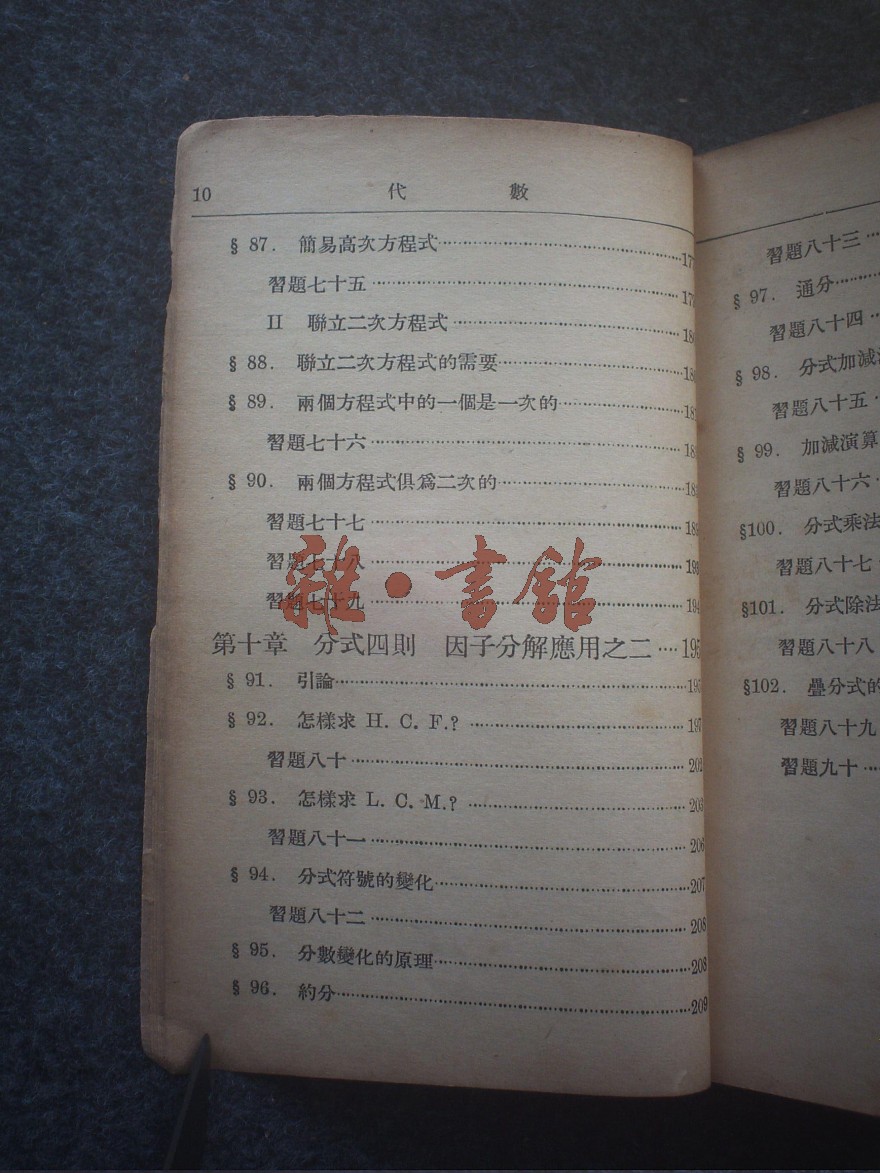 10 代數
§ 87. 簡易高次方程式
習題七十五
II 聯立二次方程式
§ 88. 聯立二次方程式的需要
§ 89. 兩個方程式中的一個是一次的
習題七十六
§ 90. 兩個方程式俱爲二次的
習題七十七
習題七十八
習題七十九 194
第十章 分式四則 因子分解應用之二 195
§ 91. 引論
§ 92. 怎樣求 H. C. F.? 197
習題八十 202
§ 93. 怎樣求 L. C. M.? 203
習題八十一 206
§ 94. 分式符號的變化 207
習題八十二 208
§ 95. 分數變化的原理 208
§ 96. 約分 209
雜·書館
習題八十三
§ 97. 通分
習題八十四
§ 98. 分式加減
習題八十五
§ 99. 加減演算
習題八十六
§100. 分式乘法
習題八十七
§101. 分式除法
習題八十八
§102. 疊分式的
習題八十九
習題九十